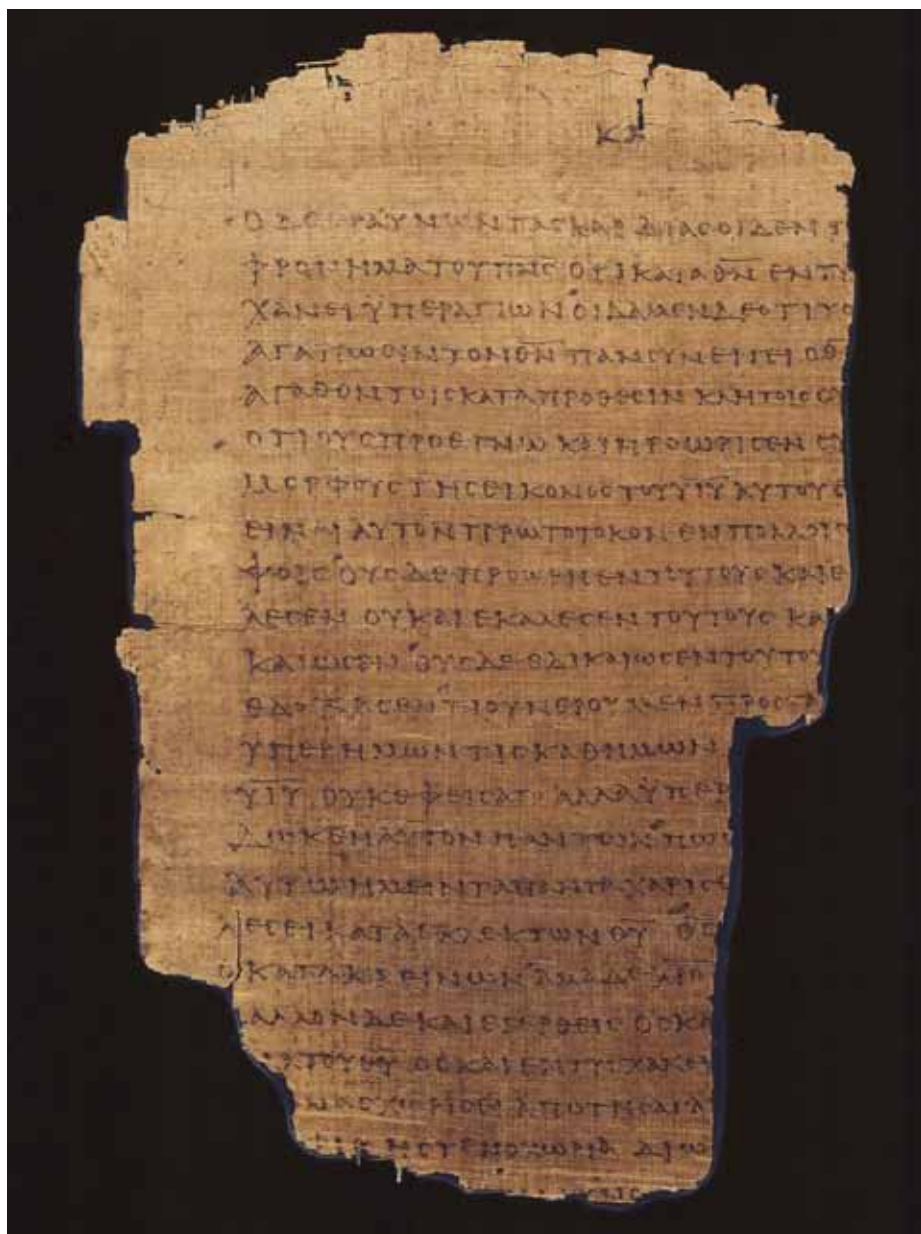 ΚΑ
Ο ΔΕ ΕΡΑΥΝΩΝ ΤΑϹ ΚΑΡΔΙΑϹ ΟΙΔΕΝ Τ
ΦΡΟΝΗΜΑ ΤΟΥ Π̅Ν̅Ϲ̅ ΟΤΙ ΚΑΤΑ Θ̅Ν̅ ΕΝΤΥ
ΧΑΝΕΙ ΫΠΕΡ ΑΓΙΩΝ ΟΙΔΑΜΕΝ ΔΕ ΟΤΙ ΤΟ
ΑΓΑΠΩϹΙΝ ΤΟΝ Θ̅Ν̅ ΠΑΝ ϹΥΝΕΡΓΕΙ Ο Θ̅
ΑΓΑΘΟΝ ΤΟΙϹ ΚΑΤΑ ΠΡΟΘΕϹΙΝ ΚΛΗΤΟΙϹ ΟΥ
ΟΤΙ ΟΥϹ ΠΡΟΕΓΝΩ ΚΑΙ ΠΡΟΩΡΙϹΕΝ ϹΥ
ΜΟΡΦΟΥϹ ΤΗϹ ΕΙΚΟΝΟϹ ΤΟΥ Υ̅Ι̅Υ̅ ΑΥΤΟΥ Ε
ΕΙΝΑΙ ΑΥΤΟΝ ΠΡΩΤΟΤΟΚΟΝ ΕΝ ΠΟΛΛΟΙ
ΦΟΙϹ ΟΥϹ ΔΕ ΠΡΟΩΡΙϹΕΝ ΤΟΥΤΟΥϹ ΚΑΙ Ε
ΛΕϹΕΝ ΟΥϹ ΚΑΙ ΕΚΑΛΕϹΕΝ ΤΟΥΤΟΥϹ ΚΑ
ΚΑΙΩϹΕΝ ΟΥϹ ΔΕ ΕΔΙΚΑΙΩϹΕΝ ΤΟΥΤΟΥ
ΕΔΟΞΑϹΕΝ ΤΙ ΟΥΝ ΕΡΟΥΜΕΝ ΠΡΟϹ
ΫΠΕΡ ΗΜΩΝ ΤΙϹ ΚΑΘ ΗΜΩΝ
Υ̅Ι̅Υ̅ ΟΥΚ ΕΦΕΙϹΑΤΟ ΑΛΛΑ ΫΠΕΡ
ΔΩΚΕΝ ΑΥΤΟΝ ΠΑΝΤΩΝ ΠΩ
ΑΥΤΩ ΗΜΕΙΝ ΤΑ ΠΑΝΤΑ ΧΑΡΙϹ
ΛΕϹΕΙ ΚΑΤΑ ΕΚΛΕΚΤΩΝ Θ̅Υ̅ Θ̅Ϲ̅
ΚΑΤΑΚΡΕΙΝΩΝ
ΜΑΛΛΟΝ ΔΕ ΚΑΙ ΕΓΕΡΘΕΙϹ ΟϹ ΚΑ
ΤΟΥ Θ̅Υ̅ ΟϹ ΚΑΙ ΕΝΤΥΓΧΑΝΕΙ
ΑΠΟ ΤΗϹ ΑΓΑ
Η ϹΤΕΝΟΧΩΡΙΑ Η ΔΙΩ